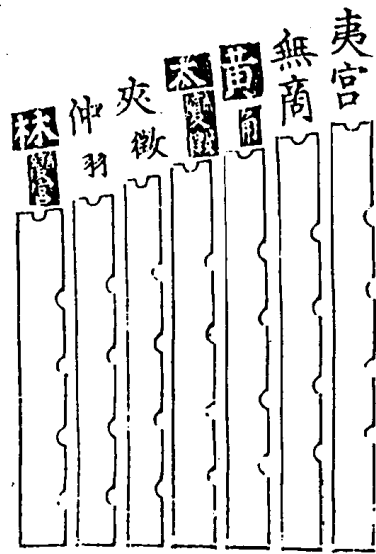 夷宮
無商
黃角
太變徵
夾徵
仲羽
林變宮